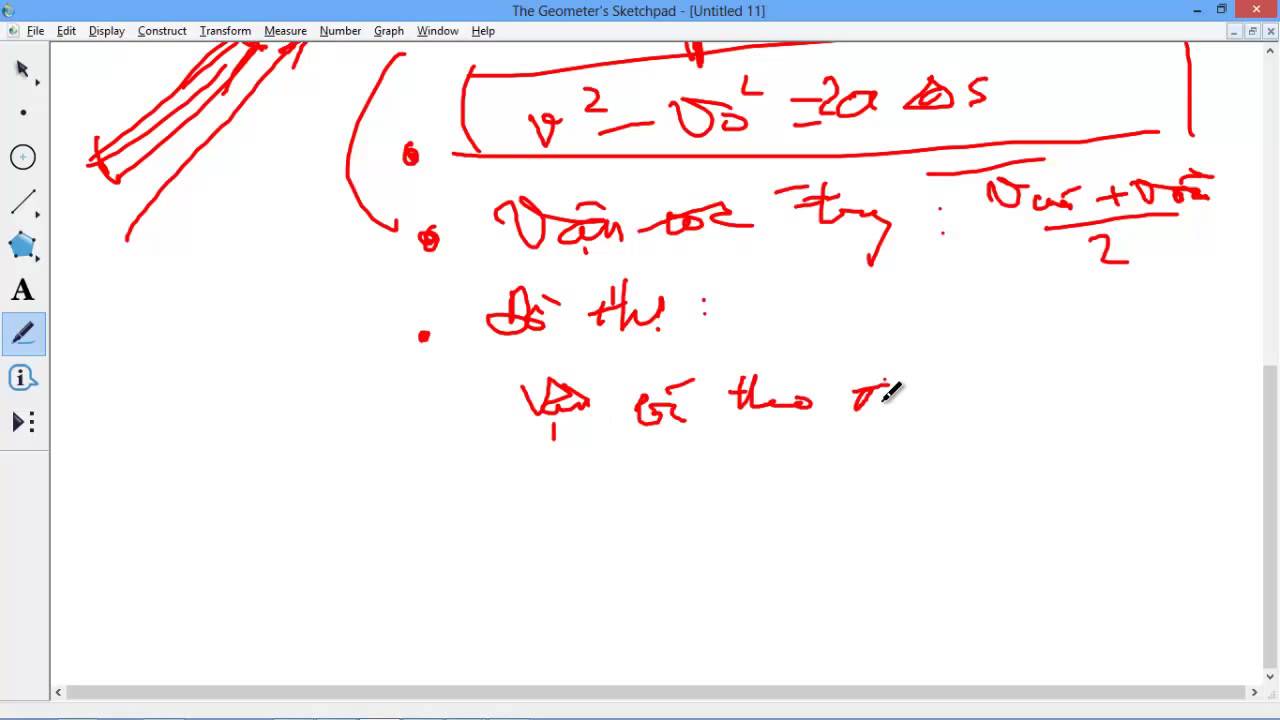 The Geometer's Sketchpad - [Untitled 11]
File Edit Display Construct Transform Measure Number Graph Window Help
v² - v₀² = 2a Δ S
Vận tốc : (V cuối + V đầu) / 2
A
Đồ thị :
Vận tốc theo